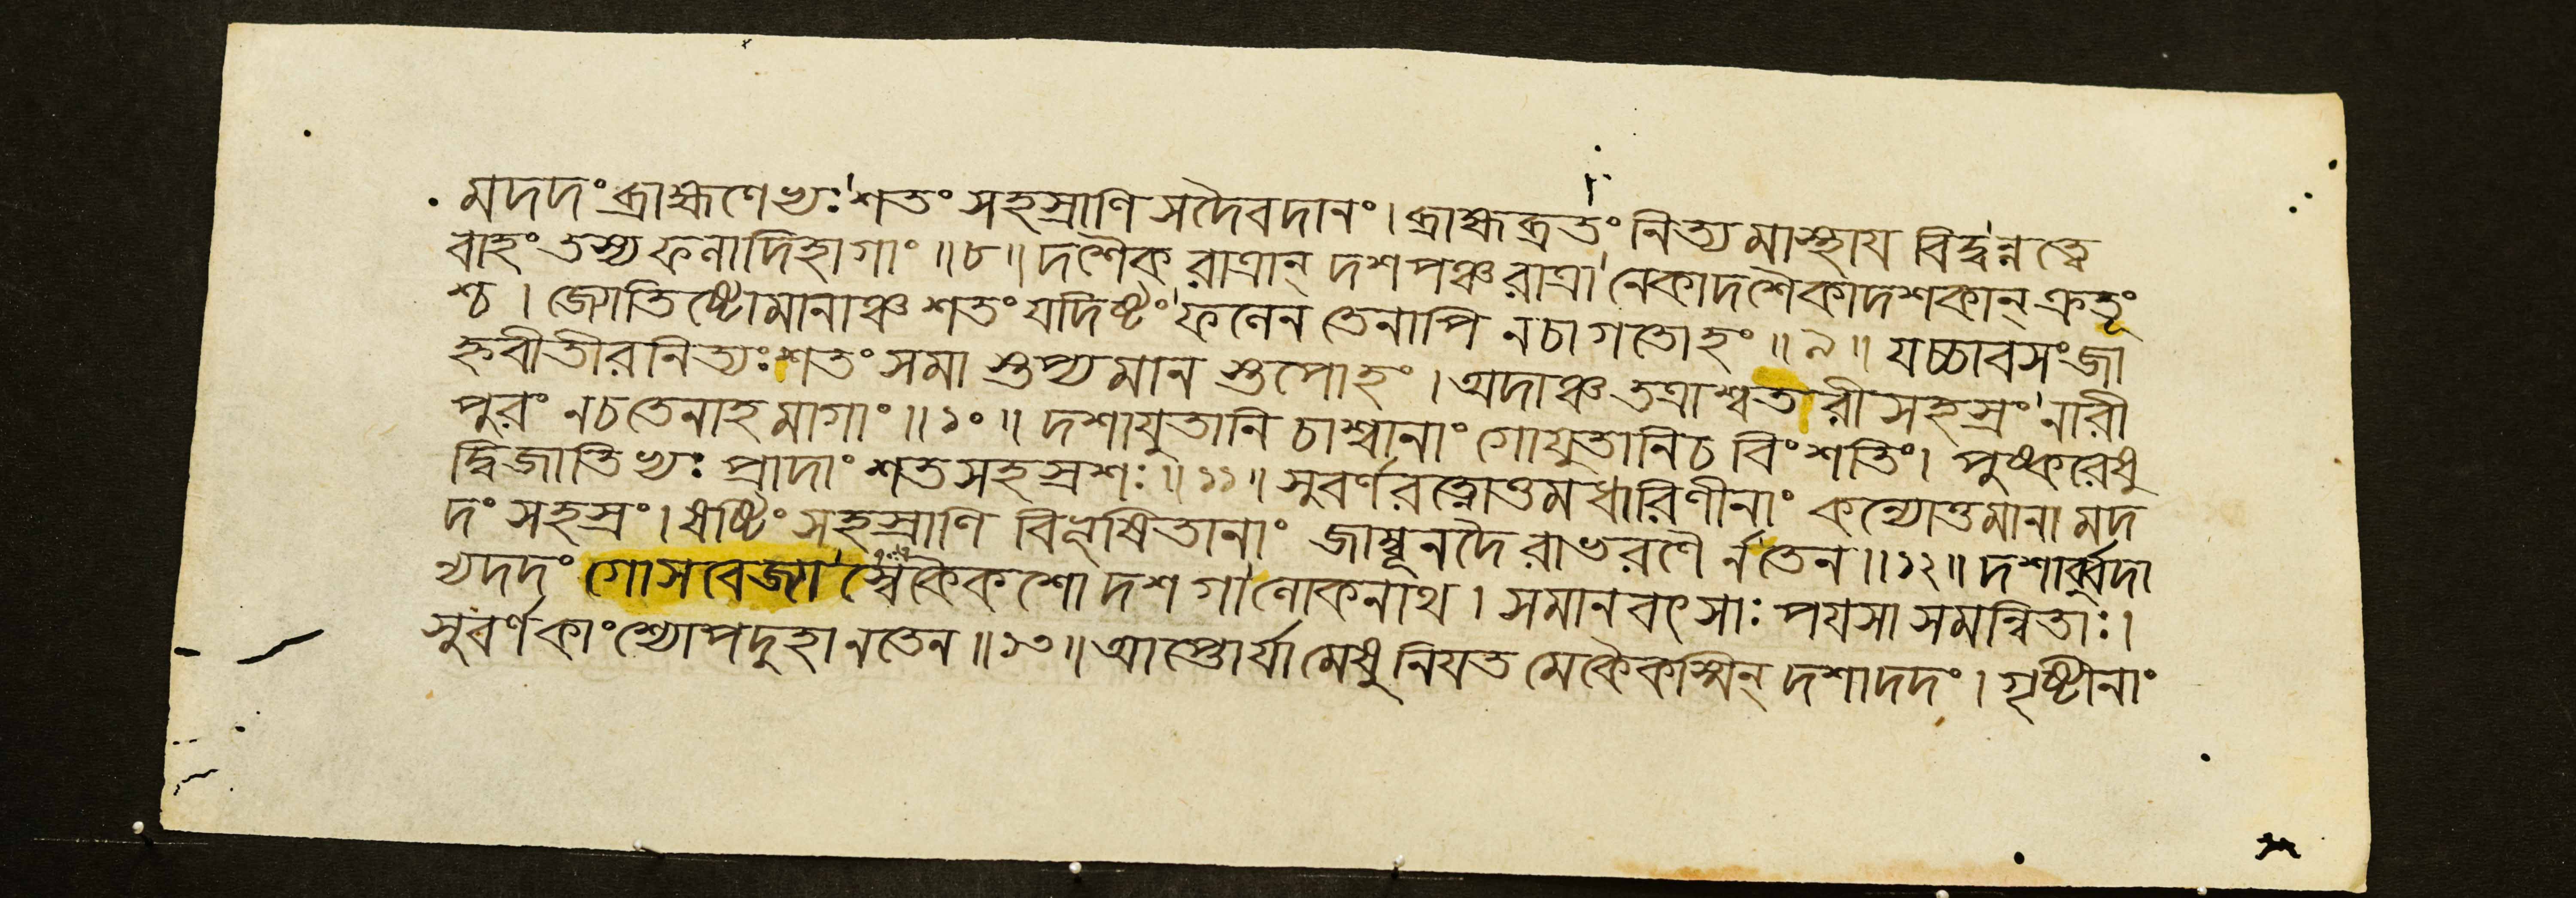 মদদং ব্রাহ্মণেভ্যঃ শতং সহস্রাণি সদৈবদানং। ব্রাহ্মব্রতং নিত্যমাস্থায বিদ্বন্নত্বে
বাহং তস্য ফলাদিহাগাং ॥৮॥ দশৈক রাত্রান্ দশপঞ্চরাত্রা নেকাদশৈকাদশকান্ ক্রতূং
শ্চ। জ্যোতিষ্টোমানাঞ্চ শতং যদিষ্টং ফলেন তেনাপি নচাগতোহং ॥৯॥ যচ্চাবসং জা
হ্নবীতীরনিত্যঃ শতং সমা স্তপ্যমান স্তপোহং। অদাঞ্চ তত্রাশ্বতরী সহস্রং নারী
পুরং নচতেনাহমাগাং ॥১০॥ দশাযুতানি চাশ্বানাং গোযুতানিচ বিংশতিং। পুষ্করেষু
দ্বিজাতিভ্যঃ প্রাদাং শতসহস্রশঃ ॥১১॥ সুবর্ণরত্নোত্তমধারিণীনাং কন্যোত্তমানামদ
দং সহস্রং। ষষ্টিং সহস্রাণি বিভূষিতানাং জাম্বূনদৈরাভরণৈর্নতেন ॥১২॥ দশার্ব্বুদা
ন্যদদং গোসবেজ্যা স্বেকৈকশো দশ গা লোকনাথ। সমানবৎসাঃ পযসা সমন্বিতাঃ।
সুবর্ণকাংস্যোপদুহা নতেন ॥১৩॥ আপ্তোর্যামেষু নিযতমেকৈকস্মিন্ দশাদদং। গৃষ্টীনাং